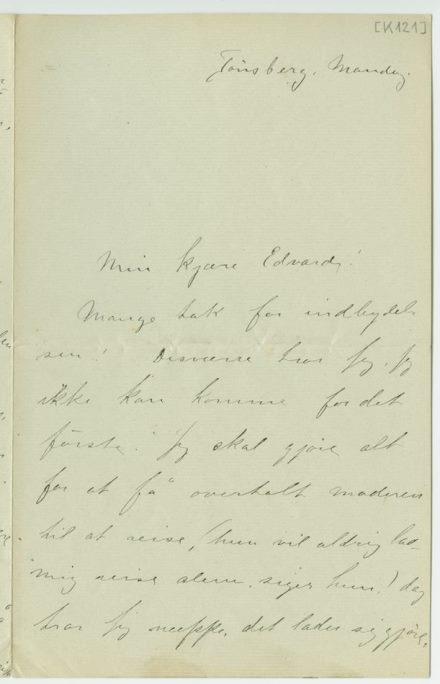 [K121]
Tönsberg. Mandag.
Min kjære Edvard!
Mange tak for indbydel-
sen! Desværre tror jeg, jeg
ikke kan komme for det
förste. Jeg skal gjöre alt
for at få overtalt moderen
til at reise, (hun vil aldrig lad-
mig reise alene, siger hun!) dog
tror jeg neppe, det lader sig gjöre,